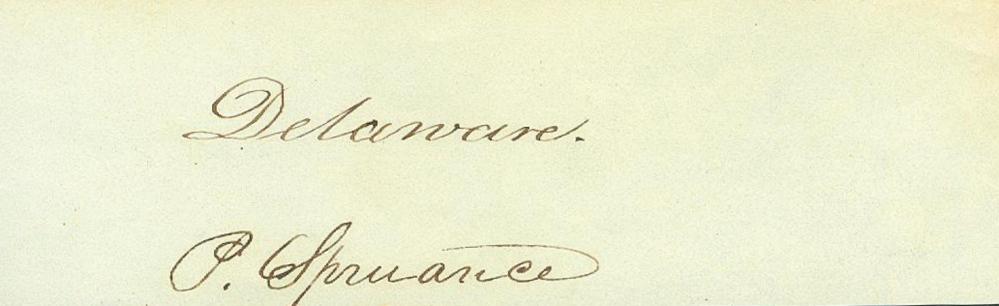 Delaware.
P. Spruance